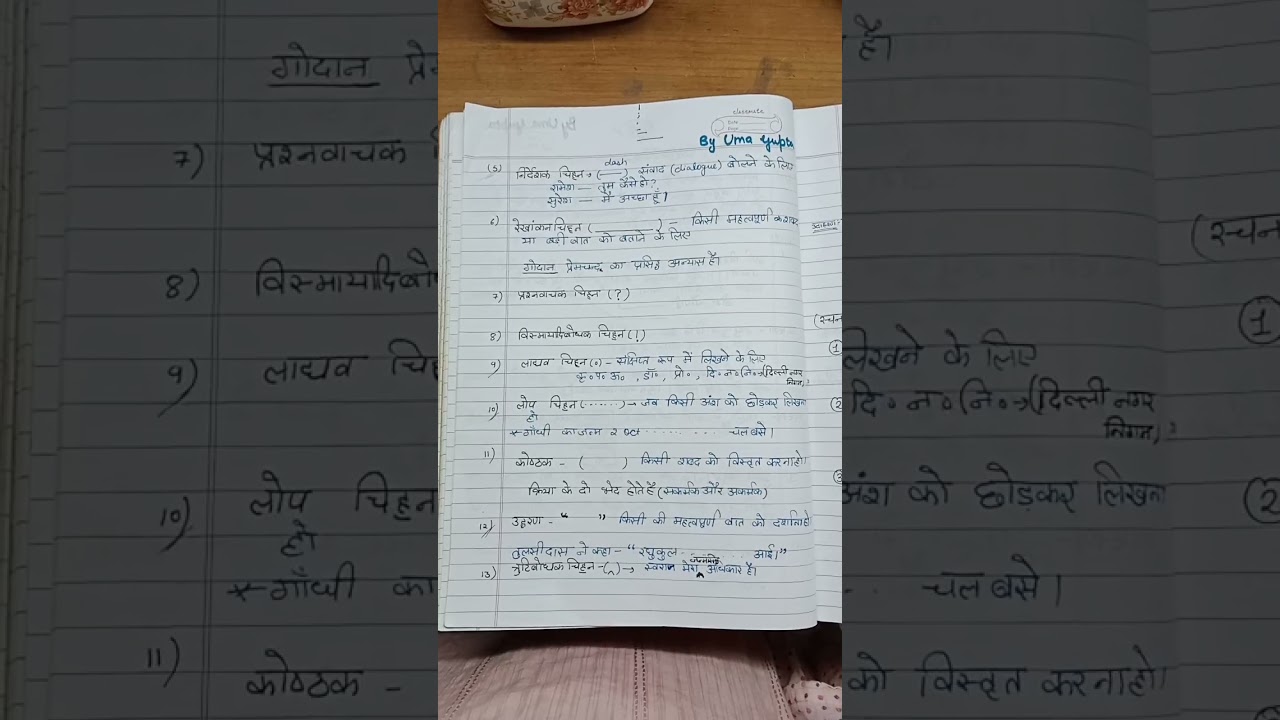 classmate
Date
Page
By Uma Gupta
(5) निर्देशक चिहन→ (—) संवाद (dialogue) बोलने के लिए
dash
रामेश — तुम कैसे हो?
सुरेश — मैं अच्छा हूँ।
6) रेखांकन चिहन (______) – किसी महत्वपूर्ण
या बड़ी बात को बताने के लिए
गोदान प्रेमचन्द का प्रसिद्ध उपन्यास है।
7) प्रश्नवाचक चिहन (?)
8) विस्मायादिबोधक चिहन (!)
9) लाघव चिहन (०) – संक्षिप्त रूप में लिखने के लिए
कृ०प०उ०, डॉ०, प्रो०, दि०न०(नि०→(दिल्ली नगर
निगम)
10) लोप चिहन (......) → जब किसी अंश को छोडकर लिखना
हो
*गाँधी का जन्म 2 oct .......... चल बसे।
11) कोष्ठक – ( ) किसी शब्द को विस्तृत करना हो।
क्रिया के दो भेद होते हैं (सकर्मक और अकर्मक)
12) उद्दरण – " " किसी की महत्वपूर्ण बात को दर्शाना हो
तुलसीदास ने कहा – "रघुकुल ........ आई।"
13) त्रुटिबोधक चिहन – (^) → स्वराज मेरा ^ अधिकार है।
(स्चन
1
2